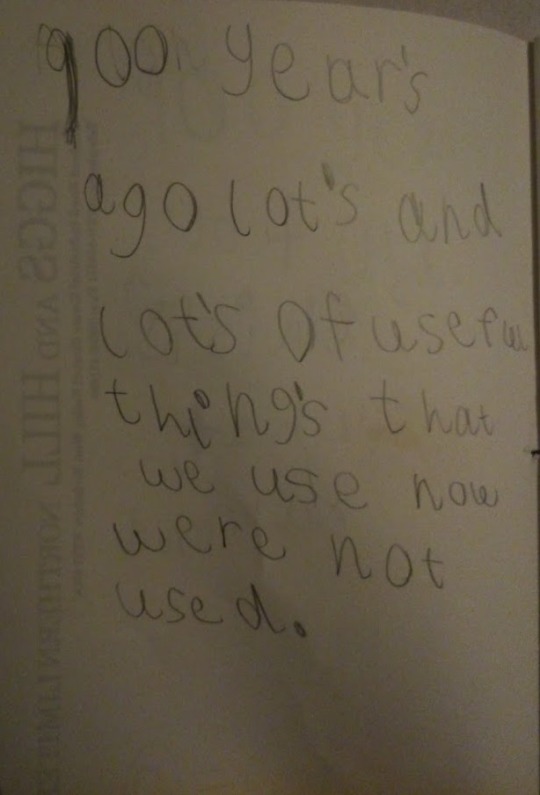 900 year's
ago lot's and
lot's of useful
thing's that
we use now
were not
used.
HIGGS AND HILL NORTHERN LIMITED